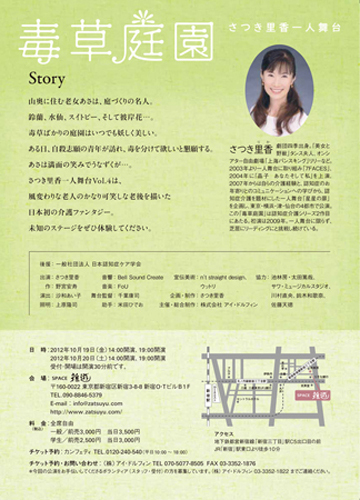 毒草庭園
さつき里香一人舞台
Story
山奥に住む老女あさは、庭づくりの名人。
鈴蘭、水仙、スイトピー、そして彼岸花…。
毒草ばかりの庭園はいつでも妖しく美しい。
ある日、自殺志願の青年が訪れ、毒を分けて欲しいと懇願する。
あさは満面の笑みでうなずくが…。
さつき里香一人舞台Vol.4は、
風変わりな老人のかなり可笑しな老後を描いた
日本初の介護ファンタジー。
未知のステージをぜひ体験してください。
さつき里香
劇団四季出身。「美女と
野獣」タンス夫人、オンシ
アター自由劇場「上海バンスキング」リリーなど。
2003年より一人舞台に取り組み「7FACES」、
2004年に「晶子 あなたそして私」を上演。
2007年からは自らの介護経験と、認知症のお
年寄りとのコミュニケーションへの学びから、認
知症介護を題材にした一人舞台「星屑の扉」
を企画し、東京・横浜・津・仙台の4都市で公演。
この「毒草庭園」は認知症介護シリーズ2作目
にあたる。初演は2009年。一人舞台に限らず、
芝居にリーディングにと挑戦し続けている。
後援:一般社団法人 日本認知症ケア学会
出演:さつき里香
作:野宮安寿
演出:沙和あい子
照明:上原陽司
音響:Bell Sound Create
音楽:FoU
舞台監督:千葉康司
助手:米田ひでお
宣伝美術:n't straight design、
ウットリ
企画・制作:さつき里香
主催・総合制作:株式会社 アイ・ドルフィン
協力:池林房・太田篤哉、
サワ・ミュージカルスタジオ、
川村直央、鈴木和歌奈、
佐藤天徳
日 時:2012年10月19日(金)14:00開演、19:00開演
2012年10月20日(土)14:00開演、19:00開演
受付・開場は開演30分前です。
会 場:SPACE 雑遊
〒160-0022 東京都新宿区新宿3-8-8 新宿O・TビルB1F
TEL.090-8846-5379
E-mail:info@zatsuyu.com
http://www.zatsuyu.com/
料 金:全席自由
(税込)
一般/前売3,000円 当日3,500円
学生/前売2,500円 当日3,000円
チケット予約:カンフェティ TEL 0120-240-540(平日10:00〜18:00)
チケット予約・お問い合わせ:(株)アイ・ドルフィン TEL 070-5077-8505 FAX 03-3352-1876
SPACE 雑遊
アクセス
地下鉄都営新宿線「新宿三丁目」駅C5出口目の前
JR「新宿」駅東口より徒歩10分